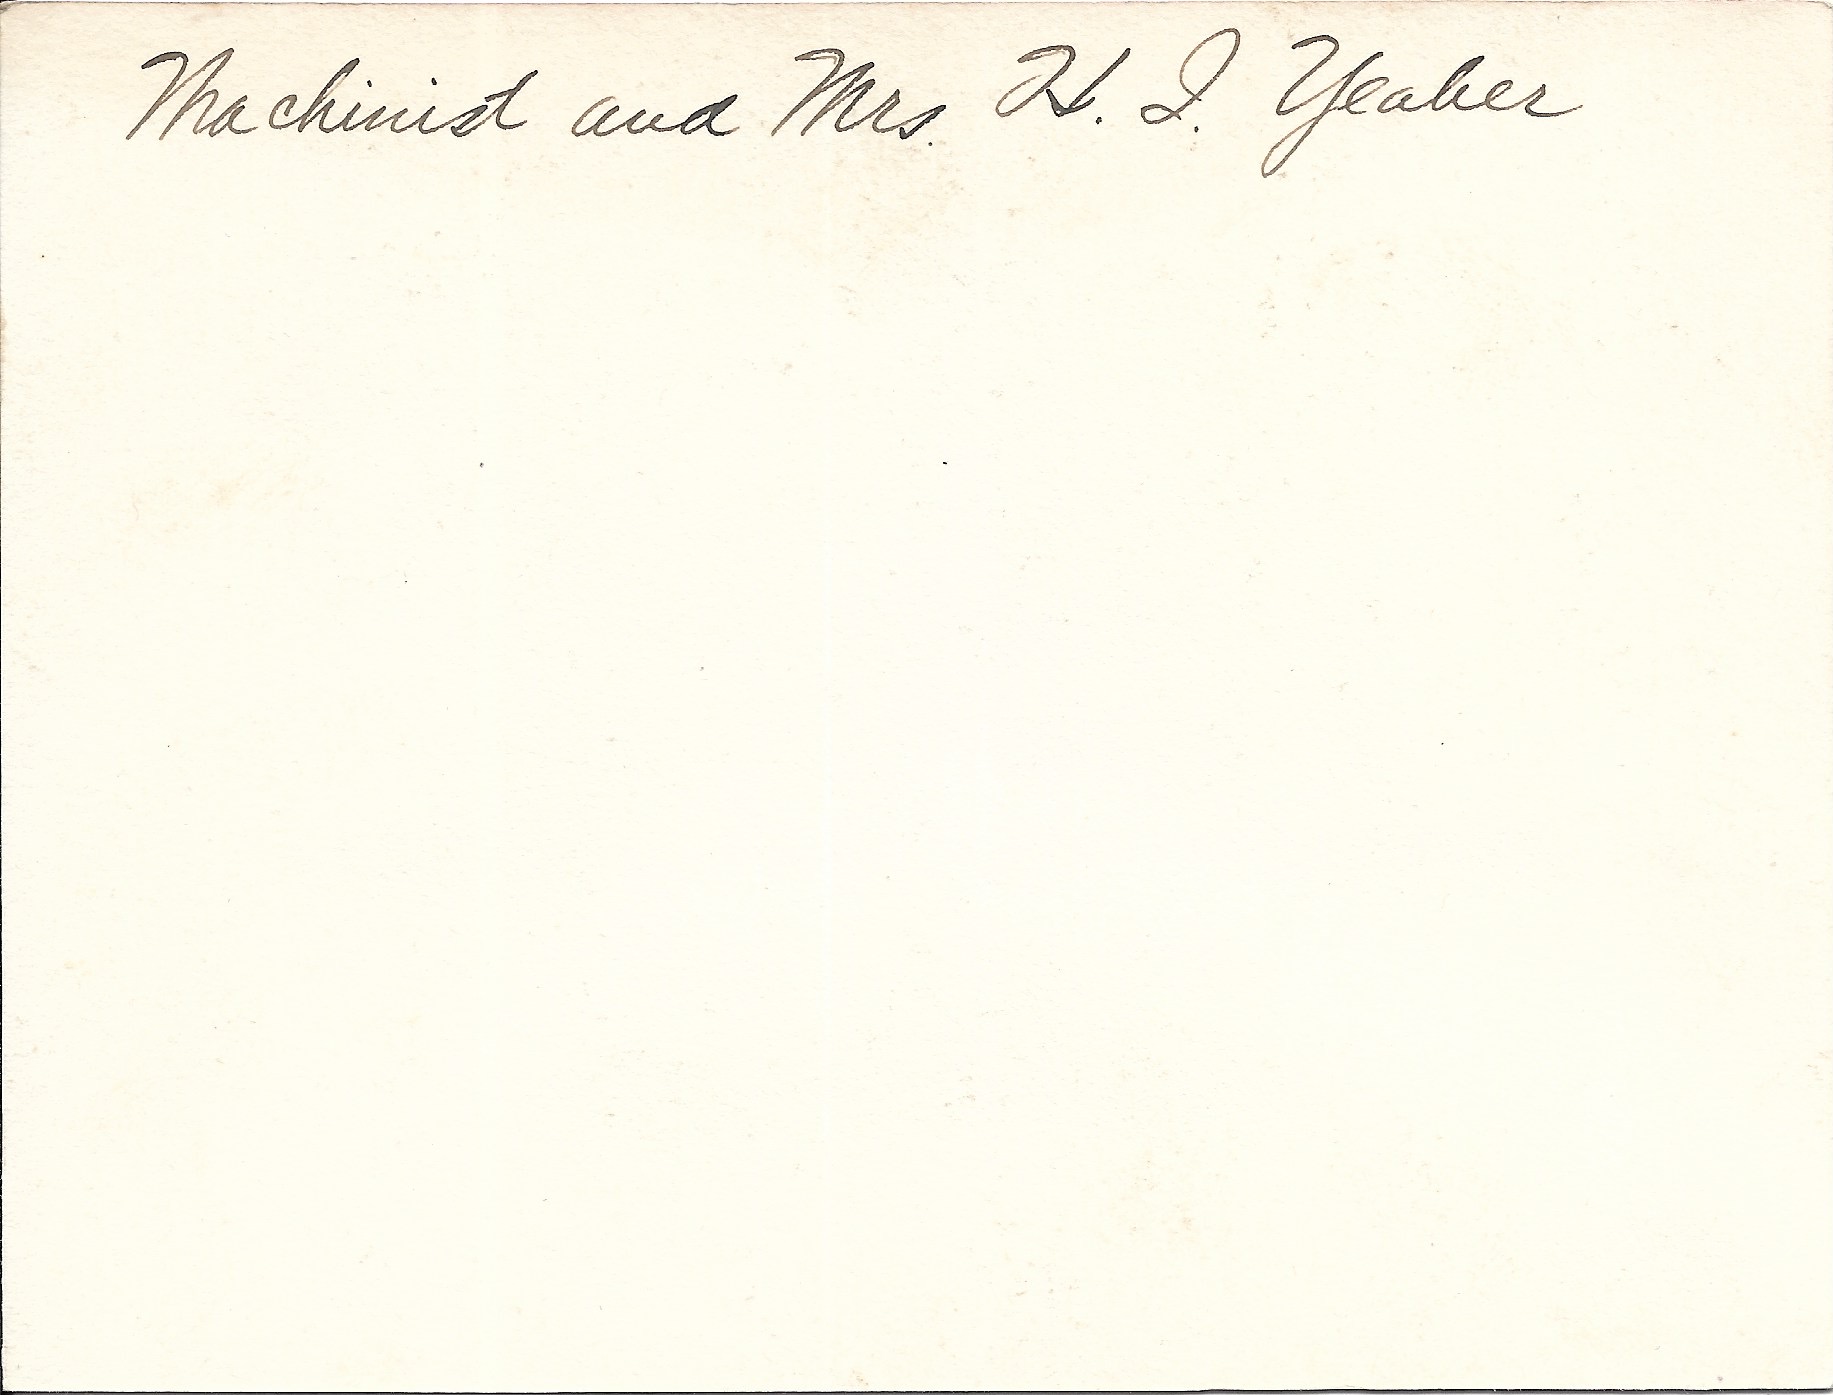 Machinist and Mrs. H. I. Yeaber